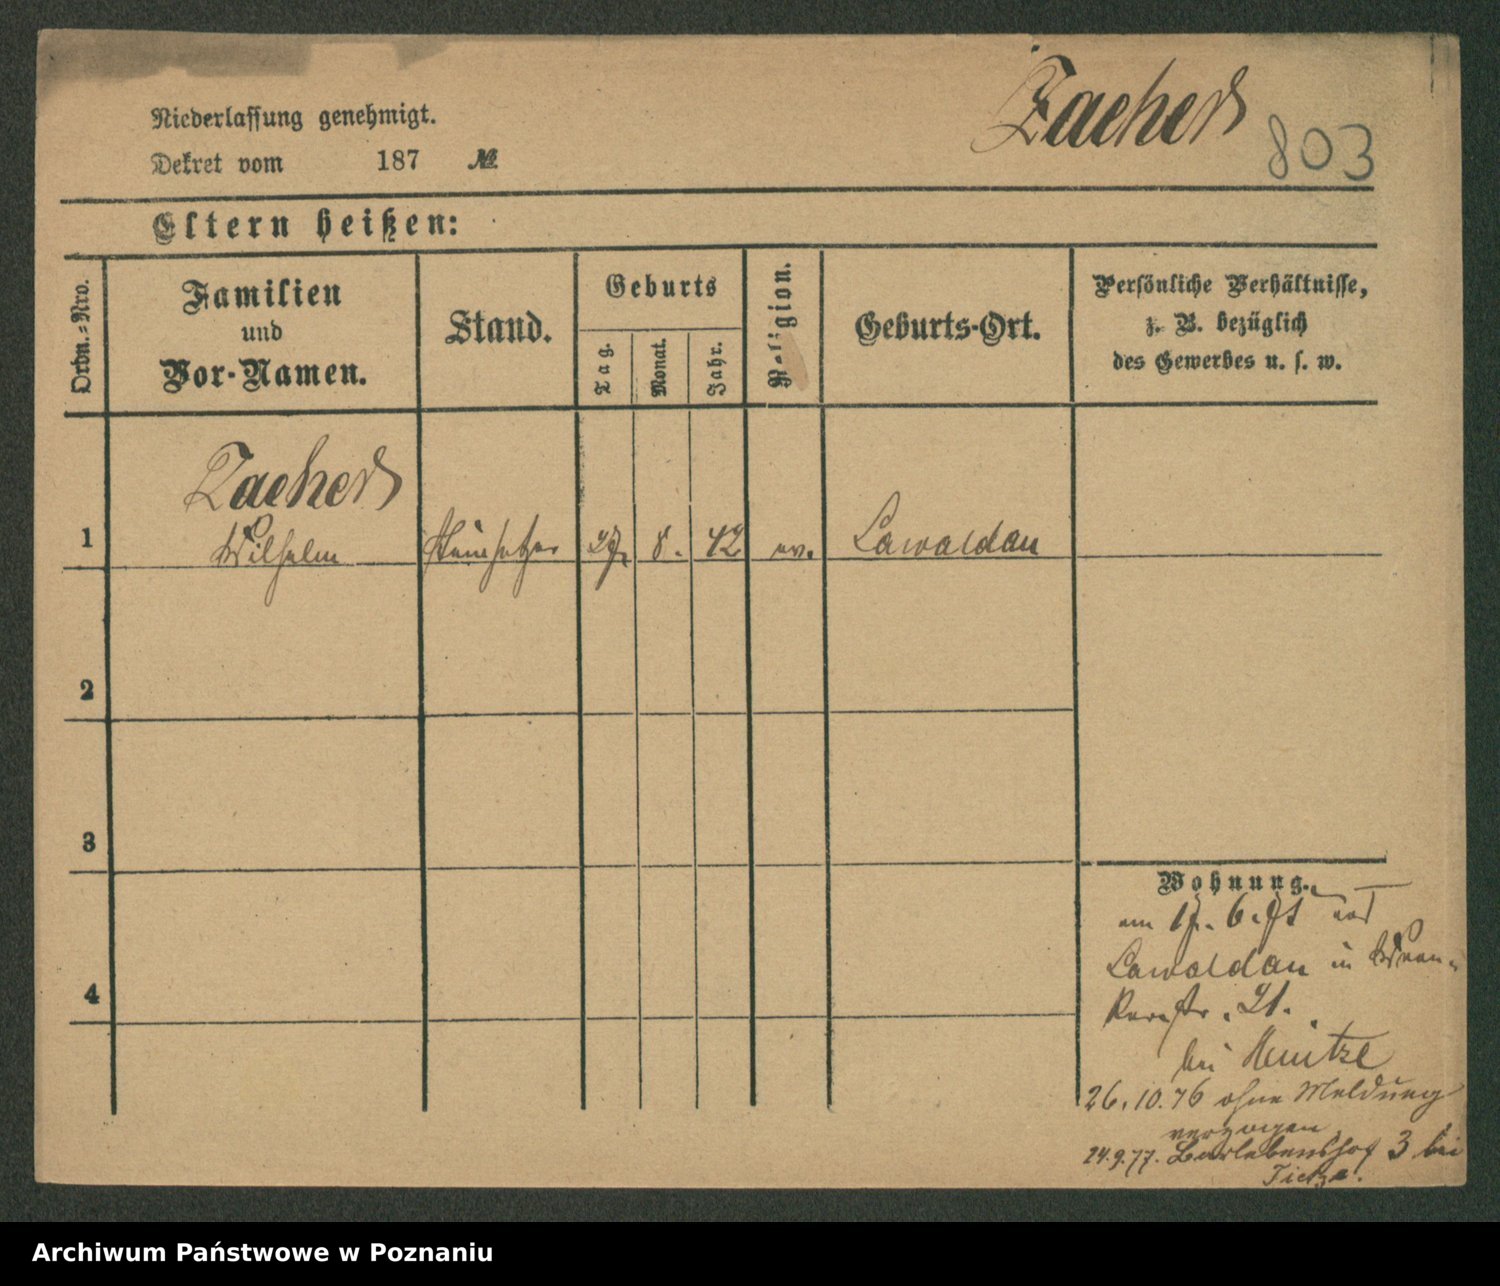 Zachert
803
Niederlassung genehmigt.
Dekret vom 187 №
Eltern heißen:
Ordn.=Nro.
Familien
und
Vor-Namen.
Stand.
Geburts
Tag.
Monat.
Jahr.
Religion.
Geburts-Ort.
Persönliche Verhältnisse,
z. B. bezüglich
des Gewerbes u. s. w.
Zachert
1 Wilhelm Steinsetzer 27. 8. 42 ev. Lawaldau
2
3
4
Wohnung.
am 17. 6. 71 aus
Lawaldau in
21.
bei Heintze
26.10.76 ohne Meldung
verzogen
24.9.77. Barlebenshof 3 bei
Tietze.
Archiwum Państwowe w Poznaniu